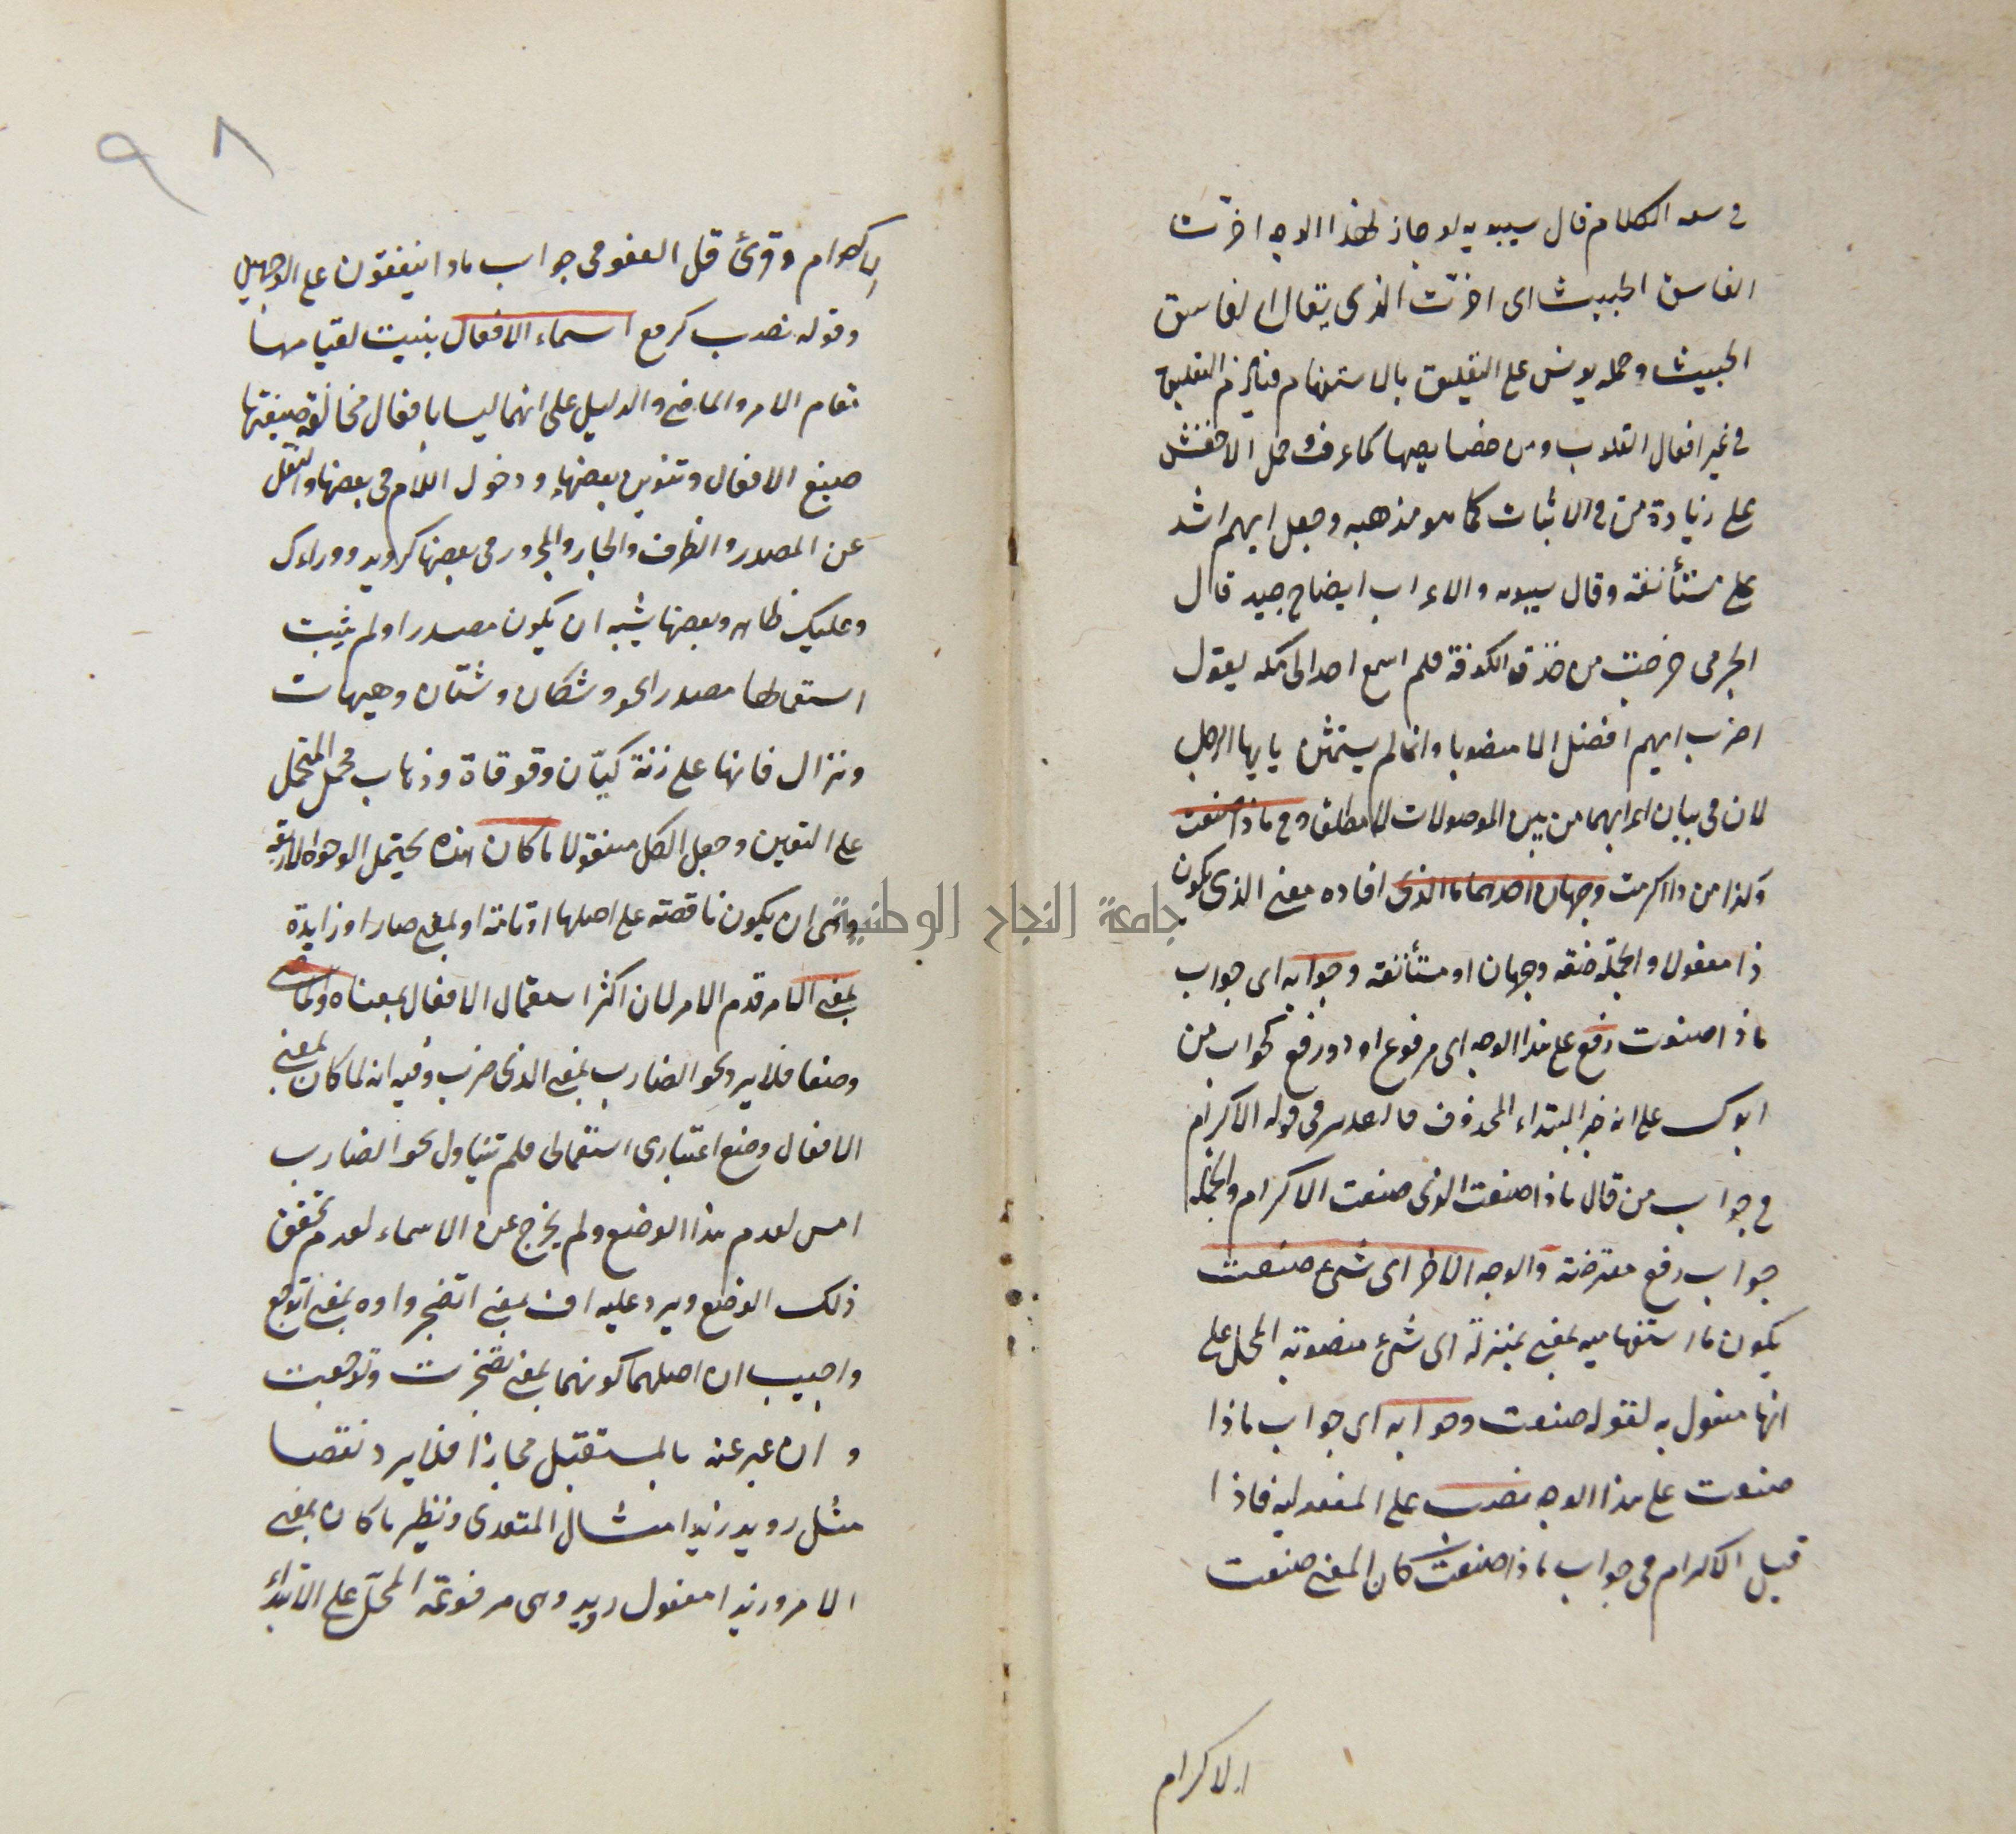 في سعة الكلام قال سيبويه لو جاز لهذا الوجه اضرب
الفاسق الخبيث اى اضرب الذى يقال له الفاسق
الخبيث وحمله يونس على التعليق بالاستفهام فيلزم التعليق
في غير افعال القلوب ومن خصايصها كما عرفت وحمل الاخفش
على زيادة من في الاثبات كما هو مذهبه وجعل ايهم اشد
على مستأنفة وقال سيبويه والاعراب ايضاح جيد قال
الجرمى خرجت من خندق الكوفة فلم اسمع احدا الى مكة يقول
اضرب ايهم افضل الا منصوبا وانما لم يستثن يا ايها الرجل
لان في بيان اعرابهما من بين الموصولات لا مطلقا وفي ماذا صنعت
وكذا من ذا اكرمت وجهان احدهما ما الذى افاده معنى الذى يكون
ذا مفعولا والجملة صفة وجهان او مستأنفة وجوابه اى جواب
ماذا صنعت رفع على هذا الوجه اى مرفوع او ذو رفع كجواب من
ابوك على انه خبر المبتداء المحذوف في قوله الاكرام
في جواب من قال ماذا صنعت الذى صنعت الاكرام والجملة
جواب رفع معترضة والوجه الاخر اى شئ صنعت
يكون ما استفهامية بمعنى بمنزلة اى شئ منصوبة المحل على
انها مفعول به لقوله صنعت وجوابه اى جواب ماذا
صنعت على هذا الوجه نصب على المفعولية فاذا
قيل الاكرام في جواب ماذا صنعت كان المعنى صنعت
الاكرام
٩٨
الاكرام وقرئ قل العفو في جواب ماذا ينفقون على الوجهين
وقوله نصب كرمع اسماء الافعال بنيت لقيامها
مقام الامر والماضى والدليل على انهما ليسا بافعال مخالفة صيغتها
صيغ الافعال وتنوين بعضها ودخول اللام في بعضها والنقل
عن المصدر والظرف والجار والمجرور في بعضها كرويد ووراءك
وعليك ظاهر وبعضها يشبه ان يكون مصدرا ولم يثبت
استعمالها مصدرا نحو وشكان وشتان وهيهات
ونزال فانها على زنة ليّان وقوقاة وذهاب محمل المتحمل
على التعين وجعل الكل منقولا ما كان هذه يحتمل الوجوه الاربعة
وهى ان يكون ناقصة على اصلها او تامة او بمعنى صار او زايدة
بمعنى الامر قدم الامر لان اكثر استعمال الافعال بمعناه والماضى
وضعا فلا يرد نحو الضارب بمعنى الذى ضرب وفيه انه لما كان بمعنى
الافعال وضع اعتبارى استعمالى فلم تتناول نحو الضارب
امس لعدم هذا الوضع ولم يخرج عن الاسماء لعدم تحقق
ذلك الوضع ويرد عليه اف بمعنى اتضجر واوه بمعنى اتوجع
واجيب ان اصلهما كونهما بمعنى تضجرت وتوجعت
وان عبر عنه بالمستقبل مجازا فلا يرد نقضا
مثل رويد زيدا مثال المتعدى ونظير ما كان بمعنى
الامر وزيدا مفعول رويد وهى مرفوعة المحل على الابتداء
جامعة النجاح الوطنية